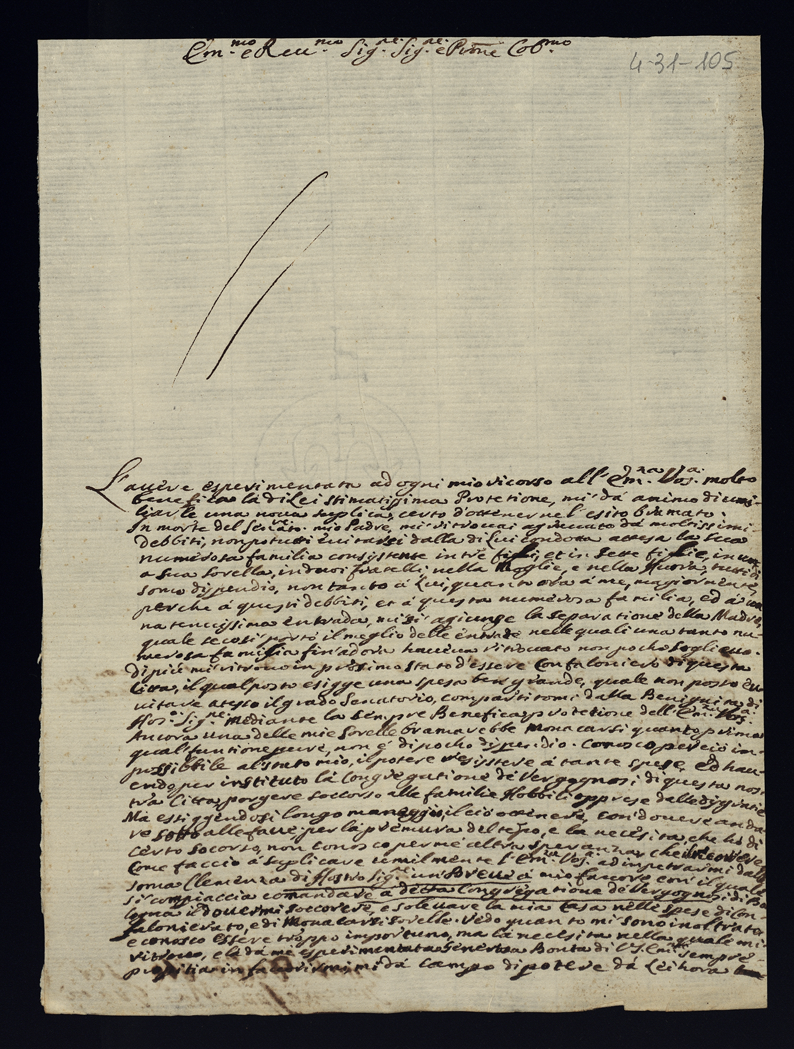 Em.mo e Reu.mo Sig.re Sig.re e Prōne Col.mo
4-31-105
L'avere esperimentata ad ogni mio ricorso all'Em.za V.ra molto
benefica la di Lei stimatissima Protetione, mi dà animo di umi-
liarle una nova suplica, certo d'ottenerne l'esito bramato.
In morte del mio Padre, mi ritrovai agravato da moltissimi
debbiti, non potuti evitarsi dalla di lui condotta attesa la sua
numerosa familia consistente in trè figli, et in sette figlie, in una
o sua sorella, in duoi fratelli, nella Moglie, e nella Nuora, tutti di
somo dispendio, non tanto à Lui, quanto ora à me, magiormente,
perche à questi debbiti, et à questa numerosa familia, ed à una
tenuissima entrada, mi si agiunge la separatione della Madre,
quale seco si portò il meglio delle entrade nelle quali una tanto nu-
merosa familia fin'adora haueua ritrovato non poco soglieuo.
di più mi ritrovo in prossimo stato d'essere Confaloniero di questa
Citta, il qual posto esigge una spesa ben grande, quale non posso eui-
vitare atteso il grado Senatorio, compartitomi dalla Benignità di
Nos.o Sig.re mediante la sempre Benefica protetione dell'Em.za Vos.a
Ancora una delle mie sorelle bramarebbe monacarsi quanto prima
qual funtione pure, non e' di poco dispendio. Conosco perciò im-
possibbile al stato mio, il potere resistere à tante spese, ed hau-
endo per instituto la Congregatione de Vergognosi di questa nos-
tra Citta, porgere soccorso alle familie Nobbili oppresse dalle disgratie
Ma esiggendosi longo maneggio, il ciò ottenere, con dovere anda-
re sotto alle faue; per la premura del tempo, e la necesità, che hò di
certo socorso, non conosco per me altra speranza, che ricorrere
Come faccio à suplicare umilmente l'Em.za Vos.a ad impetrarmi dalla
soma Clemenza di Nostro Sig.re un Breue à mio favore con il quale
si compiaccia comandare à detta Congregatione de Vergognosi di Bo-
logna il douermi soccorere, e solevare la mia casa nelle spese di Con-
falonierato, e di Monacarsi sorelle. Vedo quanto mi sono inoltrato
e conosco essere troppo importuno, ma la necesità nella quale mi
ritrovo, e la da me esperimentata Generosa Bontà di V.S. Em.ma sempre
propitia in favorirmi, mi dà campo di potere dà Lei hora